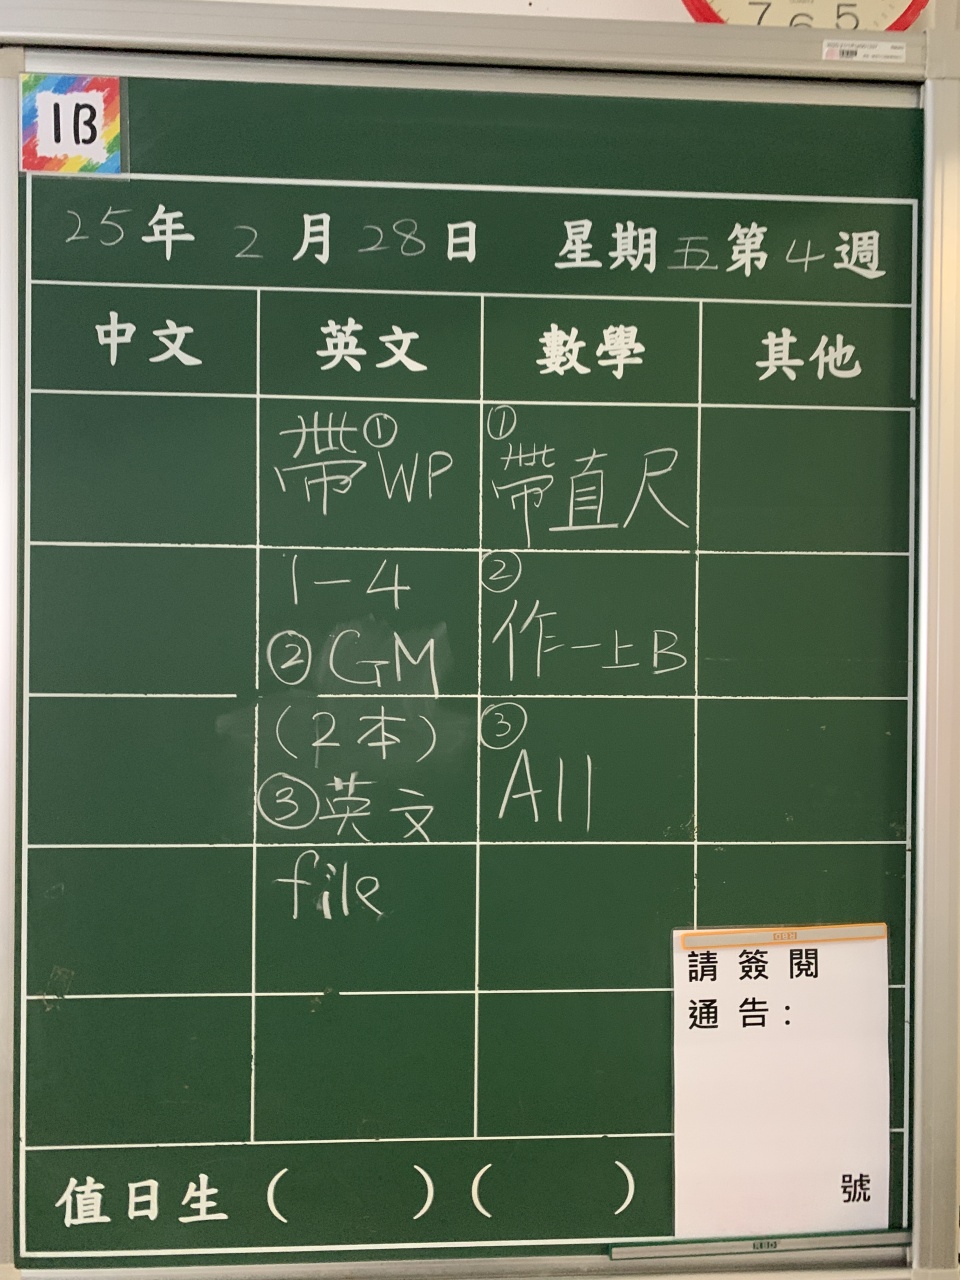 7 6 5
1B
25年 2月28日 星期五第4週
中文 英文 數學 其他
帶①WP
1-4
②GM
(2本)
③英文
file
①
帶直尺
②
作一上B
③
All
請簽閱
通告:
號
值日生( )( )